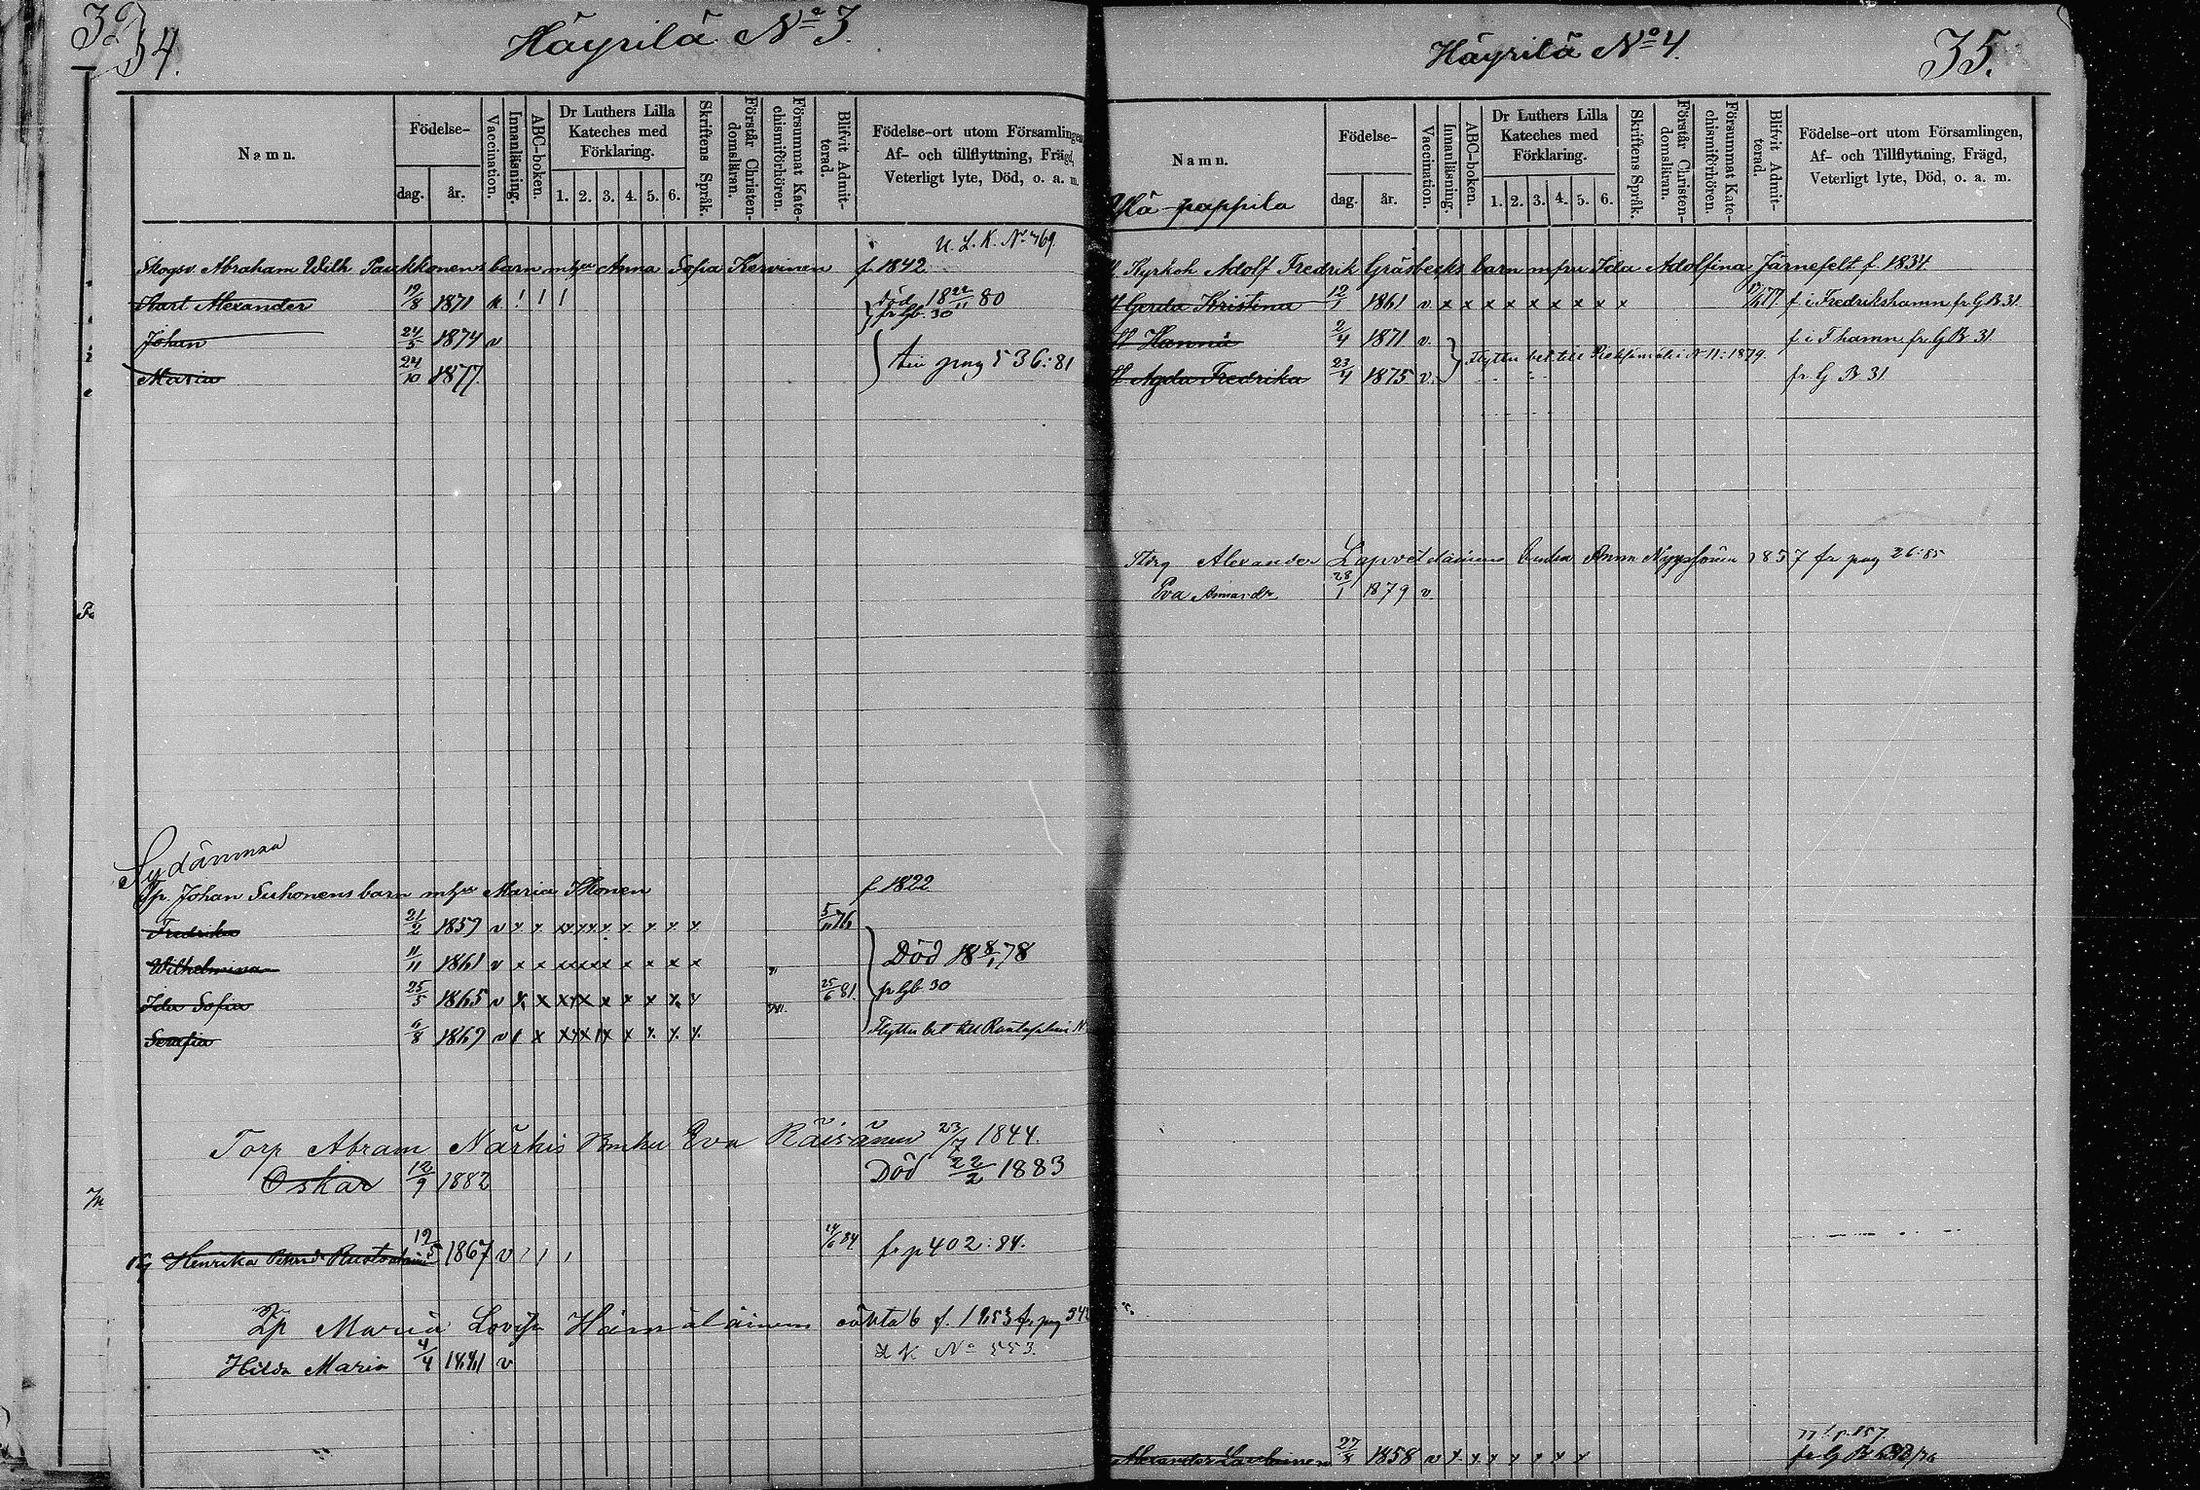 34.
Häyrilä No 3.
Namn.
Födelse-
dag. år.
Vaccination.
Innanläsning.
ABC-boken.
Dr Luthers Lilla
Kateches med
Förklaring.
1. 2. 3. 4. 5. 6.
Skriftens Språk.
Förstår Christen-
domsläran.
Försummat Kate-
chismiförhören.
Blifvit Admit-
terad.
Födelse-ort utom Församlingen
Af- och tillflyttning, Frägd,
Veterligt lyte, Död, o. a. m.
U. L. K. No 769
Skogsv. Abraham Wilh Paukkonens barn m hu Anna Sofia Kervinen f 1842
Karl Alexander 19/8 1871 död 18 22/11 80
fr Gb. 30
Johan 24/5 1874 v
Maria 24/10 1877 till pag 536:81
Sydänmaa
Johan Suhonens barn m hu Maria Ikonen f 1822
Fredrika 21/2 1859 v 5/11 76
Wilhelmina 11/11 1861 v Död 18 8/1 78
Ida Sofia 25/5 1865 v 25/6 81. fr Gb 30
Serafia 6/8 1869 v Flyttn bet till Rantasalmi N
Torp Abram Närhis Enka Eva Räisänen 23/7 1844.
Oskar 12/9 1882 Död 22/2 1883
Henrika 12/5 1867 v 14/6 84 fr p 402:84.
Maria Lovisa Hämäläinen oäkta b f. 1853 fr pag
Hilda Maria 4/4 1881 v No 553.
Häyrilä No 4.
35.
Namn.
Födelse-
dag. år.
Vaccination.
Innanläsning.
ABC-boken.
Dr Luthers Lilla
Kateches med
Förklaring.
1. 2. 3. 4. 5. 6.
Skriftens Språk.
Förstår Christen-
domsläran.
Försummat Kate-
chismiförhören.
Blifvit Admit-
terad.
Födelse-ort utom Församlingen,
Af- och Tillflyttning, Frägd,
Veterligt lyte, Död, o. a. m.
pappila
Kyrkoh Adolf Fredrik Gräsbecks barn m fru Ida Adolfina Järnefelt f 1834
Gerda Kristina 12/1 1861 v x x x x x x x x x f i Fredrikshamn fr G B 31
Hanna 2/4 1871 v. f i F hamn fr G B 31
Flyttn bet till N 11: 1879.
Agda Fredrika 23/4 1875 v. fr G B 31
Alexander Lapveteläinens Enka Anna 1857 fr pag 26:85
Eva Amanda 28/1 1879 v.
Alexander 1858 v